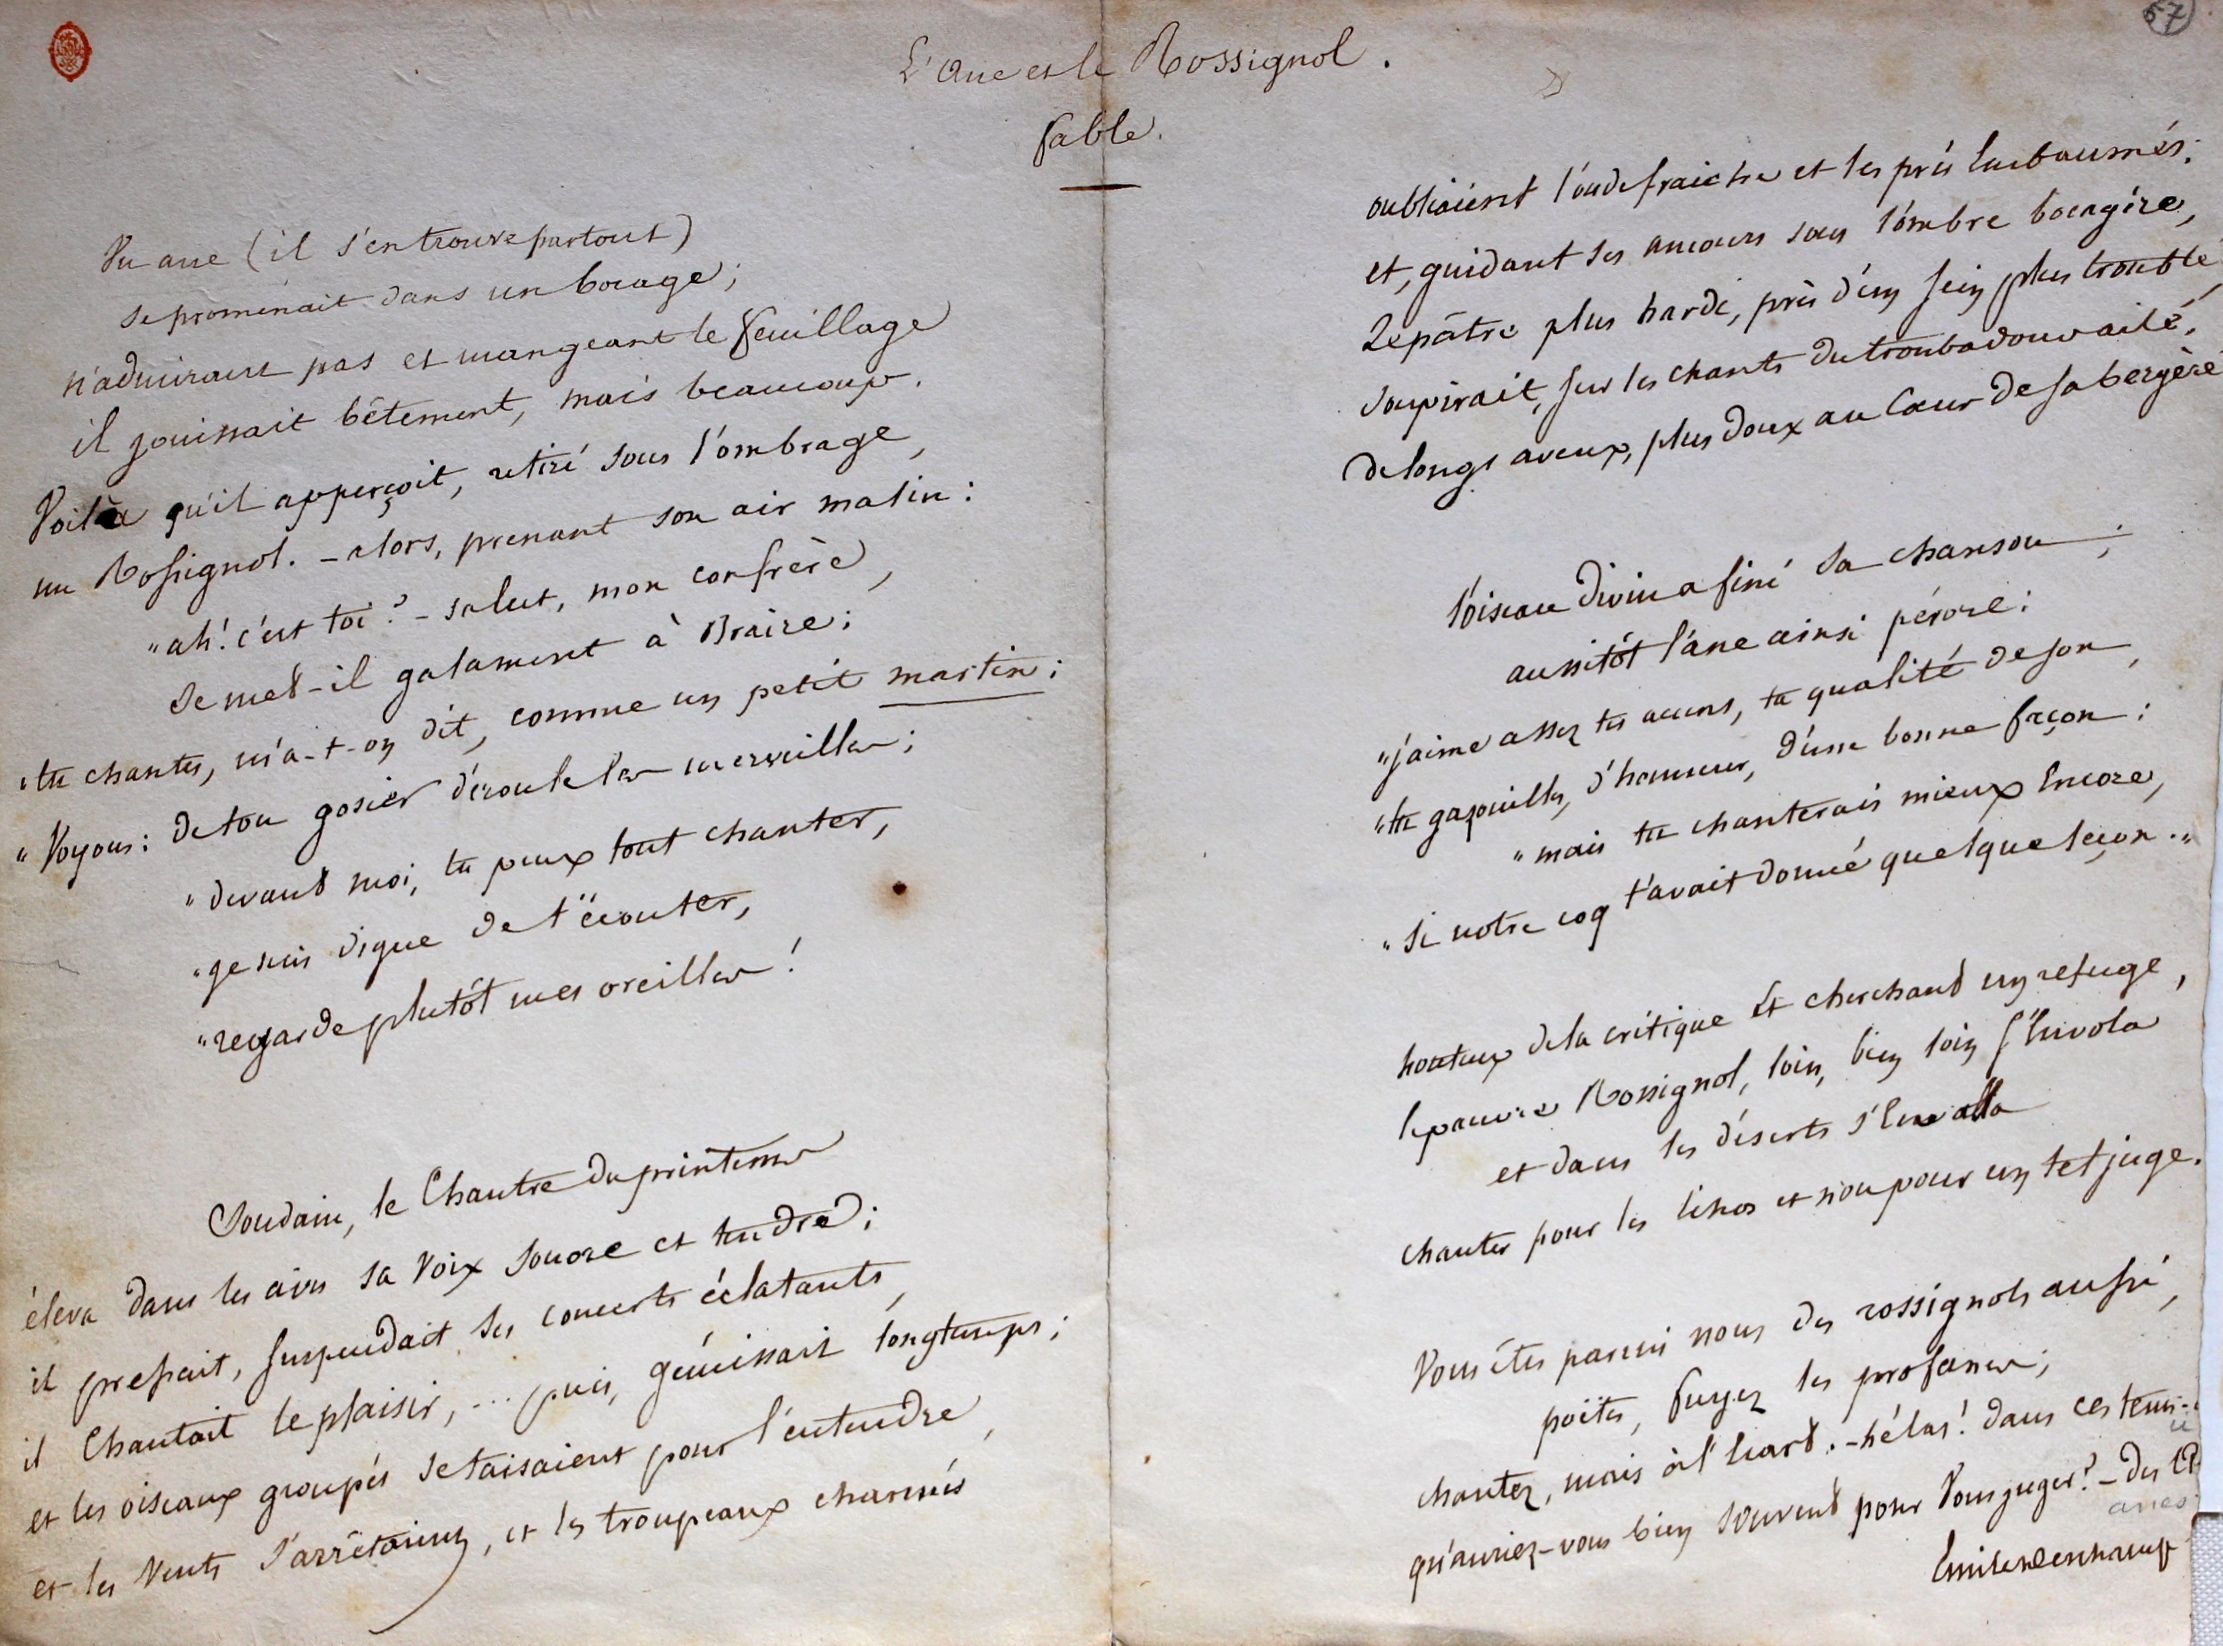 57
L'ane et le Rossignol.
fable.
Un ane (il s'en trouve partout)
se promenait dans un bocage;
n'admirant pas et mangeant le feuillage
il jouissait bêtement, mais beaucoup.
Voilà qu'il apperçoit, retiré sous l'ombrage,
un Rossignol. - alors, prenant son air malin:
"ah! c'est toi? - salut, mon confrère,
se met-il galament à Braire;
"tu chantes, m'a-t-on dit, comme un petit martin;
"Voyons: de ton gosier déroule les merveilles;
"devant moi, tu peux tout chanter,
"je suis digne de t'écouter,
"regarde plutôt mes oreilles!
Soudain, le Chantre du printems
éleva dans les airs sa voix sonore et tendre;
il pressait, suspendait ses concerts éclatants,
il Chantait le plaisir, ... puis, gémissait longtemps;
et les oiseaux groupés se taisaient pour l'entendre,
et les vents s'arrêtaient, et les troupeaux charmés
oubliaient l'onde fraiche et les prés Embaumés;
et, guidant ses amours sous l'ombre bocagère,
Le pâtre plus hardi, près d'un sein plus troublé,
soupirait, sur les chants du troubadour ailé,
de longs aveux, plus doux au Cœur de sa bergère
l'oiseau divin a fini sa chanson;
aussitôt l'ane ainsi pérore:
"j'aime assez tes accens, ta qualité de son,
"tu gazouilles, d'honneur, d'une bonne façon:
"mais tu chanterais mieux Encore,
"si notre coq t'avait donné quelque leçon."
honteux de la critique Et cherchant un refuge,
le pauvre Rossignol, loin, bien loin s'Envola
et dans les déserts s'En alla
chanter pour les Echos et non pour un tel juge.
Vous êtes parmi nous des rossignols aussi,
poëtes, fuyez les profanes;
chantez, mais à l'Ecart. - hélas! dans ces tems-ci
qu'auriez-vous bien souvent pour Vous juger? - des
anes
Emile Deschamps